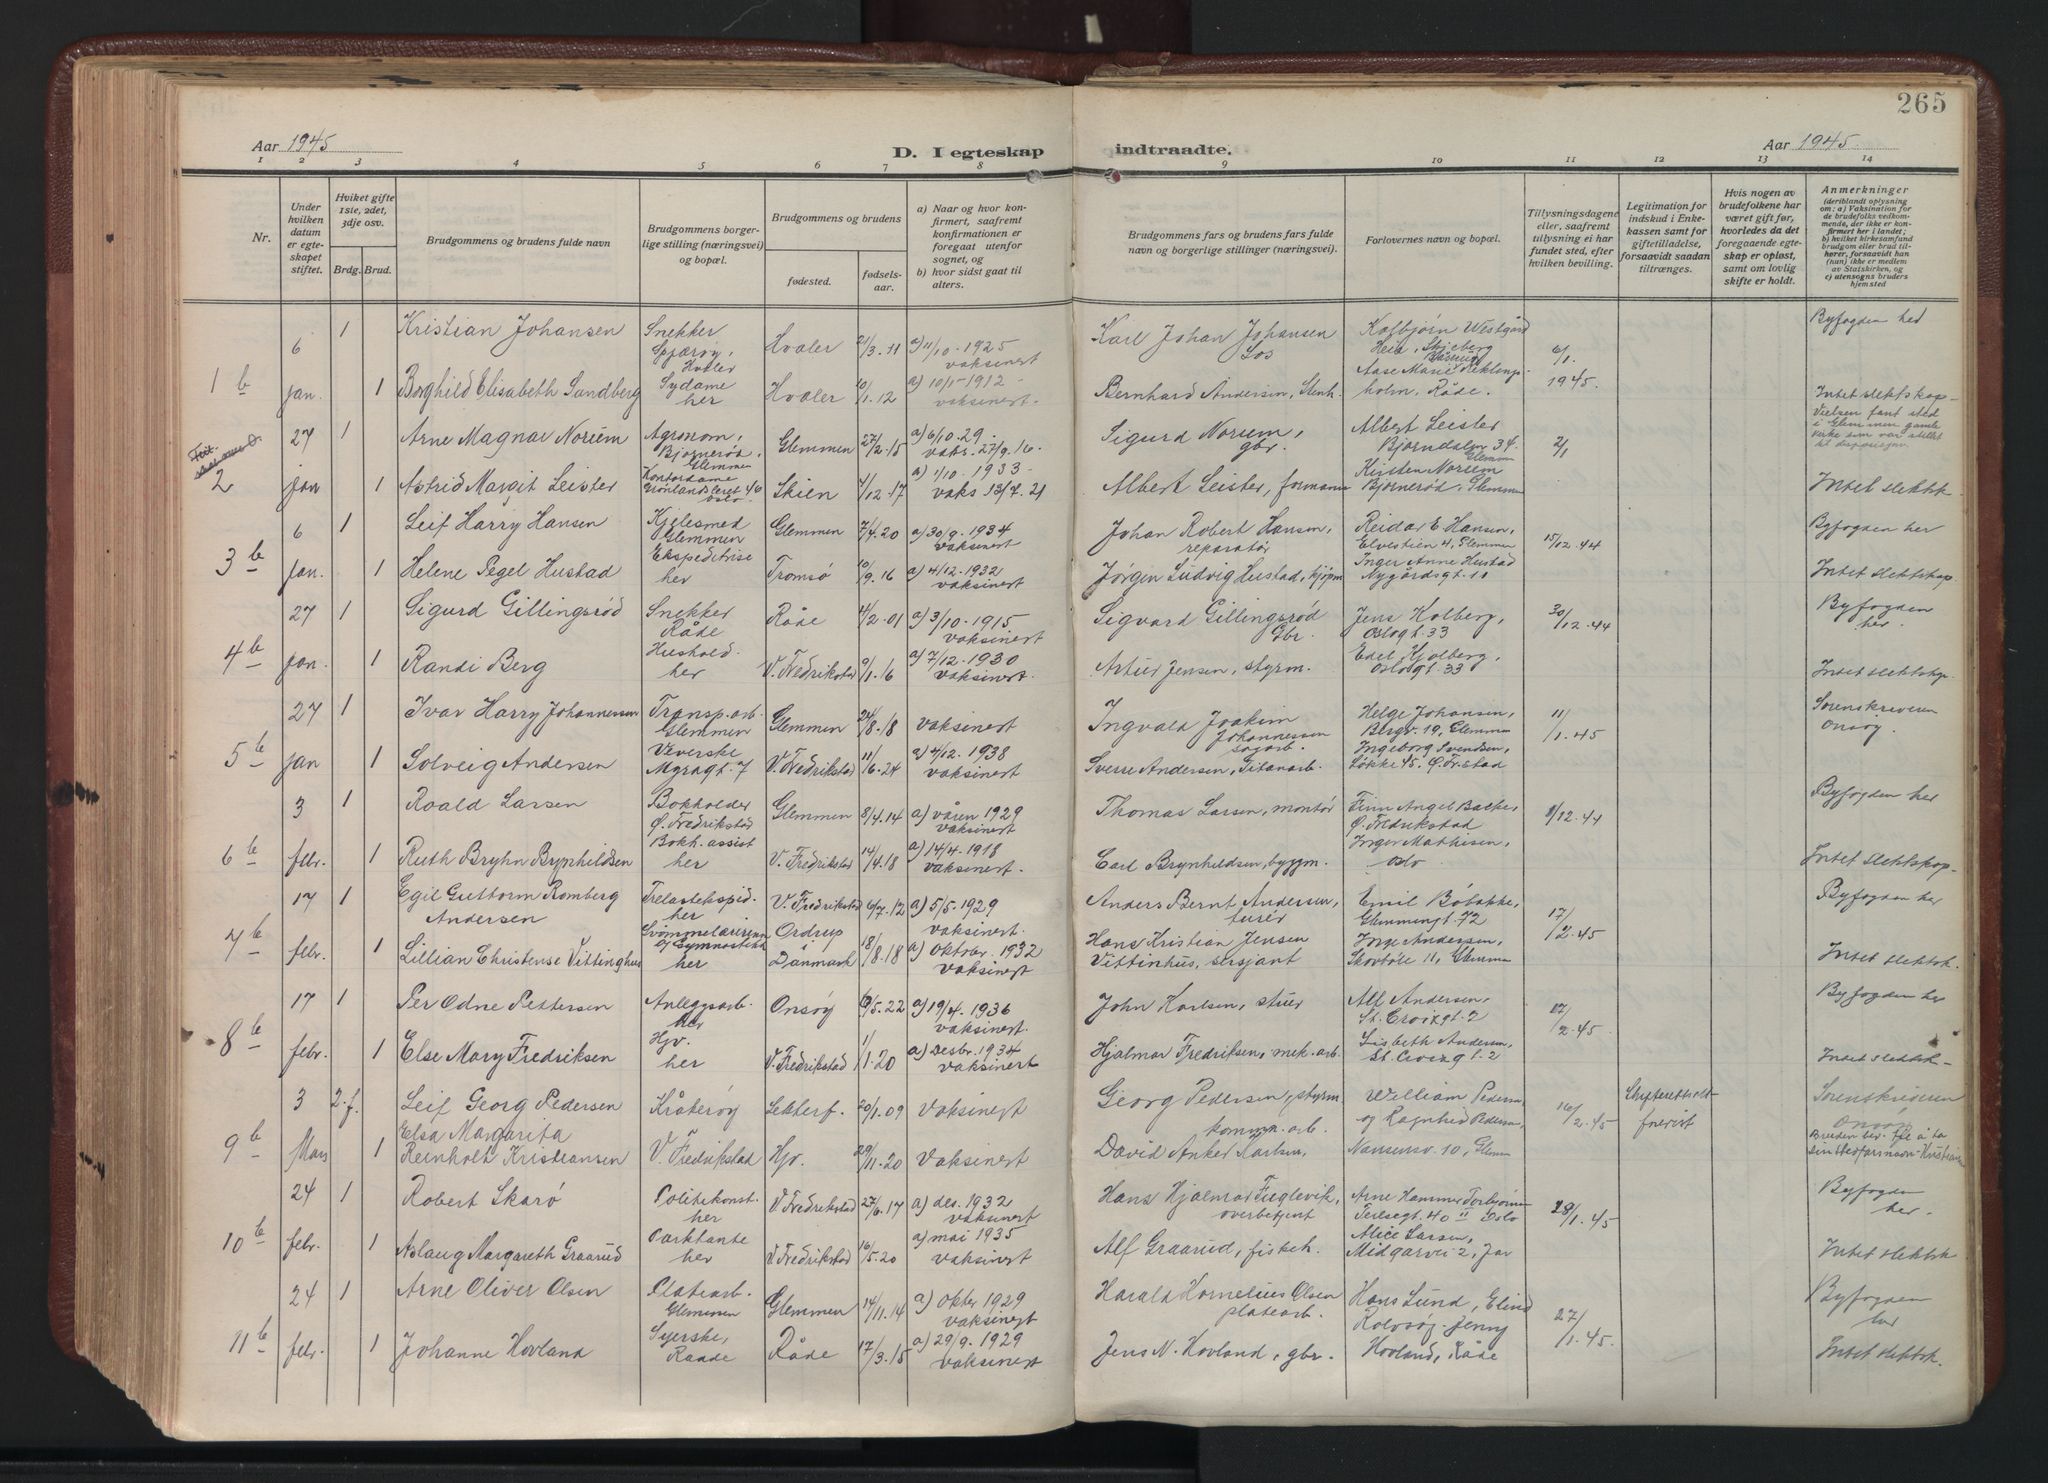 265
Aar 1945
D. I egteskap indtraadte.
Aar 1945
1 2 3 4 5 6 7 8 9 10 11 12 13 14
Nr.
Under hvilken datum er egteskapet stiftet.
Hviket gifte 1sie, 2det, 3dje osv.
Brdg. Brud.
Brudgommens og brudens fulde navn
Brudgommens borgerlige stilling (næringsvei) og bopæl.
Brudgommens og brudens
fødested.
fødselsaar.
a) Naar og hvor konfirmert, saafremt konfirmationen er foregaat utenfor sognet, og
b) hvor sidst gaat til alters.
Brudgommens fars og brudens fars fulde navn og borgerlige stillinger (næringsvei).
Forlovernes navn og bopæl.
Tillysningsdagene eller, saafremt tillysning ei har fundet sted, efter hvilken bevilling.
Legitimation for indskud i Enkekassen samt for giftetilladelse, forsaavidt saadan tiltrænges.
Hvis nogen av brudefolkene har været gift før, hvorledes da det foregaaende egteskap er opløst, samt om lovlig skifte er holdt.
Anmerkninger
(deriblandt oplysning om: a) Vaksination for de brudefolks vedkommende, der ikke er konfirmert her i landet; b) hvilket kirkesamfund brudgom eller brud tilhører, forsaavidt han (hun) ikke er medlem av Statskirken, og c) utensogns bruders hjemsted
6 1 Kristian Johansen Snekker Spjærøy, Hvaler Hvaler 21/3.11 a) 11/10-1925 vaksinert Karl Johan Johansen Los Kolbjørn Westgård Heia, Skjeberg 6/1. Byfogden her
1 b jan. 1 Borghild Elisabeth Sandberg Sydame her Hvaler 10/1.12 a) 10/1-1912 - vaksinert. Bernhard Andersen, Stenh. Aase Marie holm, Råde. 1945. Intet slektskap
27 1 Arne Magnar Norum Agronom, Bjørnerød, Glemmen Glemmen 27/2.15 a) 6/10.29 vaks. 27/9.16. Sigurd Norum, gbr. Albert Leister Bjørndalen 34. Glemm 2/1 Vielsen fant sted i Glemmen gamle kirke som var stillet til disposisjon.
2 jan 1 Astrid Margit Leister Kontordame Grønlandsleret 46 Oslo Skien 7/12.17 a) 1/10-1933 vaks 13/7.21 Albert Leister, formann Kirsten Norum Bjørnerød, Glemmen Intet slektsk.
6 1 Leif Harry Hansen Kjelesmed Glemmen Glemmen 7/4.20 a) 30/9-1934 vaksinert Johan Robert Hansen, reparatør Reidar E. Hansen, Elvestien 4, Glemmen 15/12.44 Byfogden her
3 b Jan. 1 Helene Pegel Hustad Ekspeditrise her Tromsø 10/9.16 a) 4/12.1932 vaksinert Jørgen Ludvig Hustad, kjøpm Inger Anne Hustad Nygårdsgt. 11 Intet slektskap
27 1 Sigurd Gillingsrød Snekker Råde Råde 4/2.01 a) 3/10-1915 vaksinert Sigvard Gillingsrød Gbr. Jens Kolberg, Oslogt. 33 30/12.44 Byfogden her.
4 b jan. 1 Randi Berg Hushold. her V. Fredrikstad 9/1.16 a) 7/12.1930 vaksinert. Artur Jensen, styrm. Edel Kjølberg, Oslogt. 33 Intet slektskap.
27 1 Ivar Harry Johannessen Transp.arb. Glemmen Glemmen 24/8.18 vaksinert Ingvald Joakim Johannessen sagarb. Helge Johansen, Bergv. 19, Glemmen 11/1.45 Sorenskriveren Onsøy
5 b jan 1 Solveig Andersen Veverske Myragt. 7 V. Fredrikstad 11/16.24 a) 4/12.1938 vaksinert Sverre Andersen, Titanarb. Ingeborg Svendsen, Løkke 45. Ø.Fr.stad
3 1 Roald Larsen Bokholder Ø. Fredrikstad Glemmen 8/4.14 a) våren 1929 vaksinert Thomas Larsen, montør Finn Angel Bache, Ø. Fredrikstad 11/12.44 Byfogden her
6 b febr. 1 Ruth Bryhn Brynhildsen Bokh. assist her V. Fredrikstad 14/4.18 a) 14/4.1918 vaksinert. Carl Brynhildsen, byggm. Inger Mathisen, Oslo Intet slektskap.
17 1 Egil Guttorm Romberg Andersen Trelastekspid. her V. Fredrikstad 6/7.12 a) 5/5.1929 vaksinert. Anders Bernt Andersen, turér Emil Glemmengt. 72 17/2.45 Byfogden her
7 b febr. 1 Lillian Christense Vittinghus Svømmelærerinne og Gymnastikk her Ordrup i Danmark 18/8.18 a) Oktober 1932 vaksinert Hans Kristian Jensen Vittinhus, sersjant Inge Andersen, 11, Glemmen Intet slektsk.
17 1 Per Odne Pettersen Anleggsarb. her Onsøy 6/5.22 a) 19/4.1936 vaksinert. John Karlsen, stuer Alf Andersen, St. Croixgt. 2 17/2.45 Byfogden her
8 b febr. 1 Else Mary Fredriksen Hjv. her V. Fredrikstad 1/1.20 a) Desbr. 1934 vaksinert Hjalmar Fredriksen, mek. arb. Lisbeth Andersen, St. Croixgt. 2 Intet slektsk.
3 2.f. Leif Georg Pedersen Kråkerøy Lekterf. 20/1.09 Vaksinert Georg Pedersen, styrm. William Pedersen og Ragnhild Pedersen, 16/2.45 Skifteattest Sorenskriveren Onsøy
9 b Mars 1 Elsa Margarita Reinholt Kristiansen V. Fredrikstad Hjv. 29/11.20 Vaksinert David Anker Karlsen, komm. arb. Nansensv. 10, Glemm
24 1 Robert Skarø Politikonst. her V. Fredrikstad 27/6.17 a) des. 1932 vaksinert Hans Hjalmar Fuglevik, overbetjent Arne Hammer Torbjørnsen Teresegt. 40 II Oslo 28/1.45 Byfogden her.
10 b febr. 1 Aslaug Margareth Graarud Parktante her V. Fredrikstad 16/5.20 a) mai 1935 vaksinert Alf Graarud, fiskeh. Alice Larsen, Midgarvei 2, Jar Intet slektsk.
24 1 Arne Oliver Olsen Platearb. Glemmen Glemmen 14/11.14 a) Oktbr 1929 vaksinert. Harald Kornelius Olsen platearb. Hans Lund, Elind Rolvsøy. Jenny 27/1.45. Byfogden her
11 b febr. 1 Johanne Hovland Syerske, Raade Råde 17/3.15 a) 29/9.1929 vaksinert Jens N. Hovland, gbr. Hovland, Råde Intet slektsk.